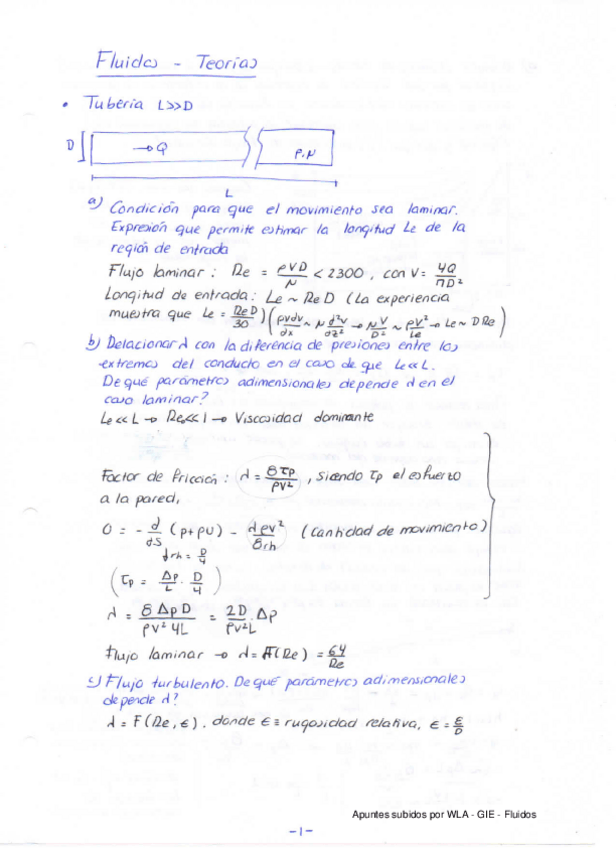 Fluidos - Teorías
• Tubería L>>D
D
→Q
ρ, μ
L
a) Condición para que el movimiento sea laminar.
Expresión que permite estimar la longitud Le de la
región de entrada
Flujo laminar : Re = ρVD/μ < 2300 , con V = 4Q/ΠD²
Longitud de entrada : Le ~ Re D ( La experiencia
muestra que Le = ReD/30 ) ( ρvdv/dx ~ μ d²v/dz² → μV/D² ~ ρV²/Le → Le ~ D Re )
b) Relacionar λ con la diferencia de presiones entre los
extremos del conducto en el caso de que Le << L.
De qué parámetros adimensionales depende λ en el
caso laminar?
Le << L → Re << 1 → Viscosidad dominante
Factor de fricción : λ = 8τp/ρV² , siendo τp el esfuerzo
a la pared,
0 = - d/dS (p+ρU) - λρV²/8rh (Cantidad de movimiento)
↓ rh = D/4
( τp = Δp/L · D/4 )
λ = 8 Δp D/ρV² 4L = 2D/ρV²L · Δp
Flujo laminar → λ = F(Re) = 64/Re
c) Flujo turbulento. De qué parámetros adimensionales
depende λ?
λ = F(Re, ϵ), donde ϵ ≡ rugosidad relativa, ϵ = ε/D
Apuntes subidos por WLA - GIE - Fluidos
-1-